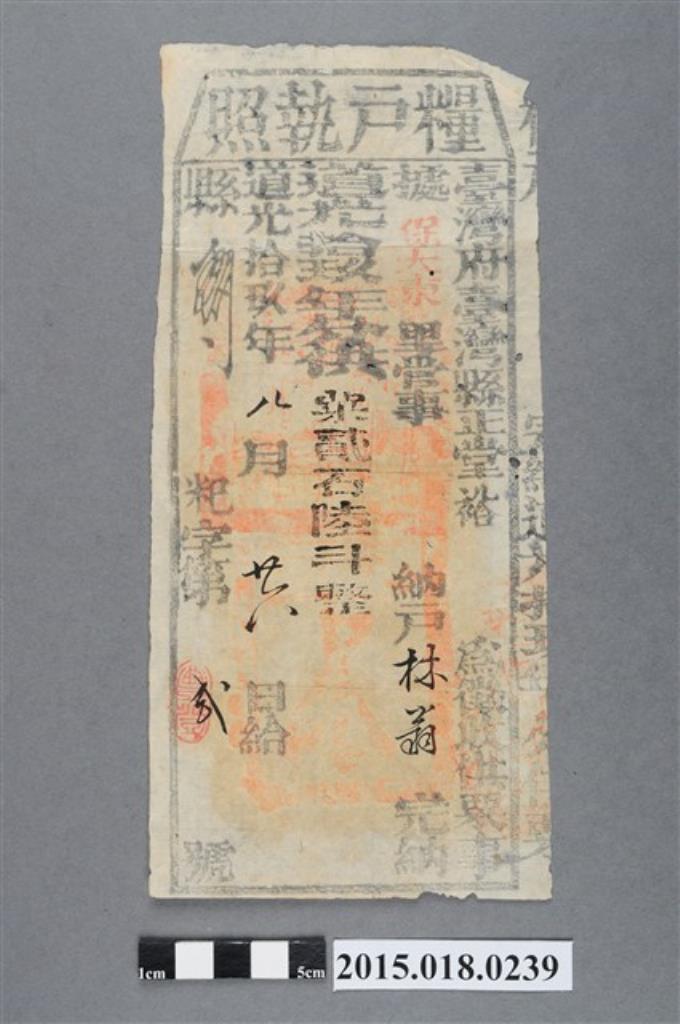 糧戶執照
臺灣府臺灣縣正堂裕 為徵收供粟事
據 保大東 里管事 納戶 林翁 完納
道光拾玖年供
粟貳石陸斗整
道光拾玖年 八月 廿八 日給
縣 粑字第 貳 號
1cm 5cm
2015.018.0239